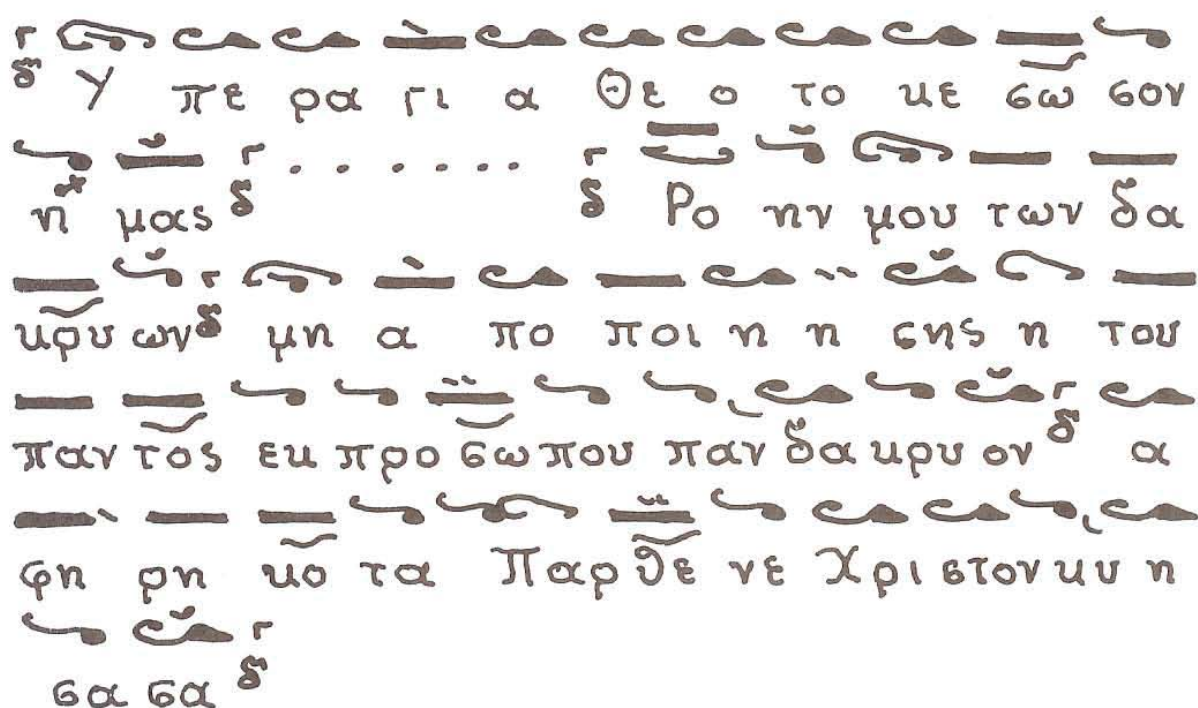 Υ πε ρα γι α Θε ο το κε σω σον
η μας δ . . . . . . δ Ρο ην μου των δα
κρυ ων δ μη α πο ποι η η σης η του
παν τος εκ προ σω που παν δα κρυ ον δ α
φη ρη κο τα Παρ θε νε Χρι στον κυ η
σα σα δ